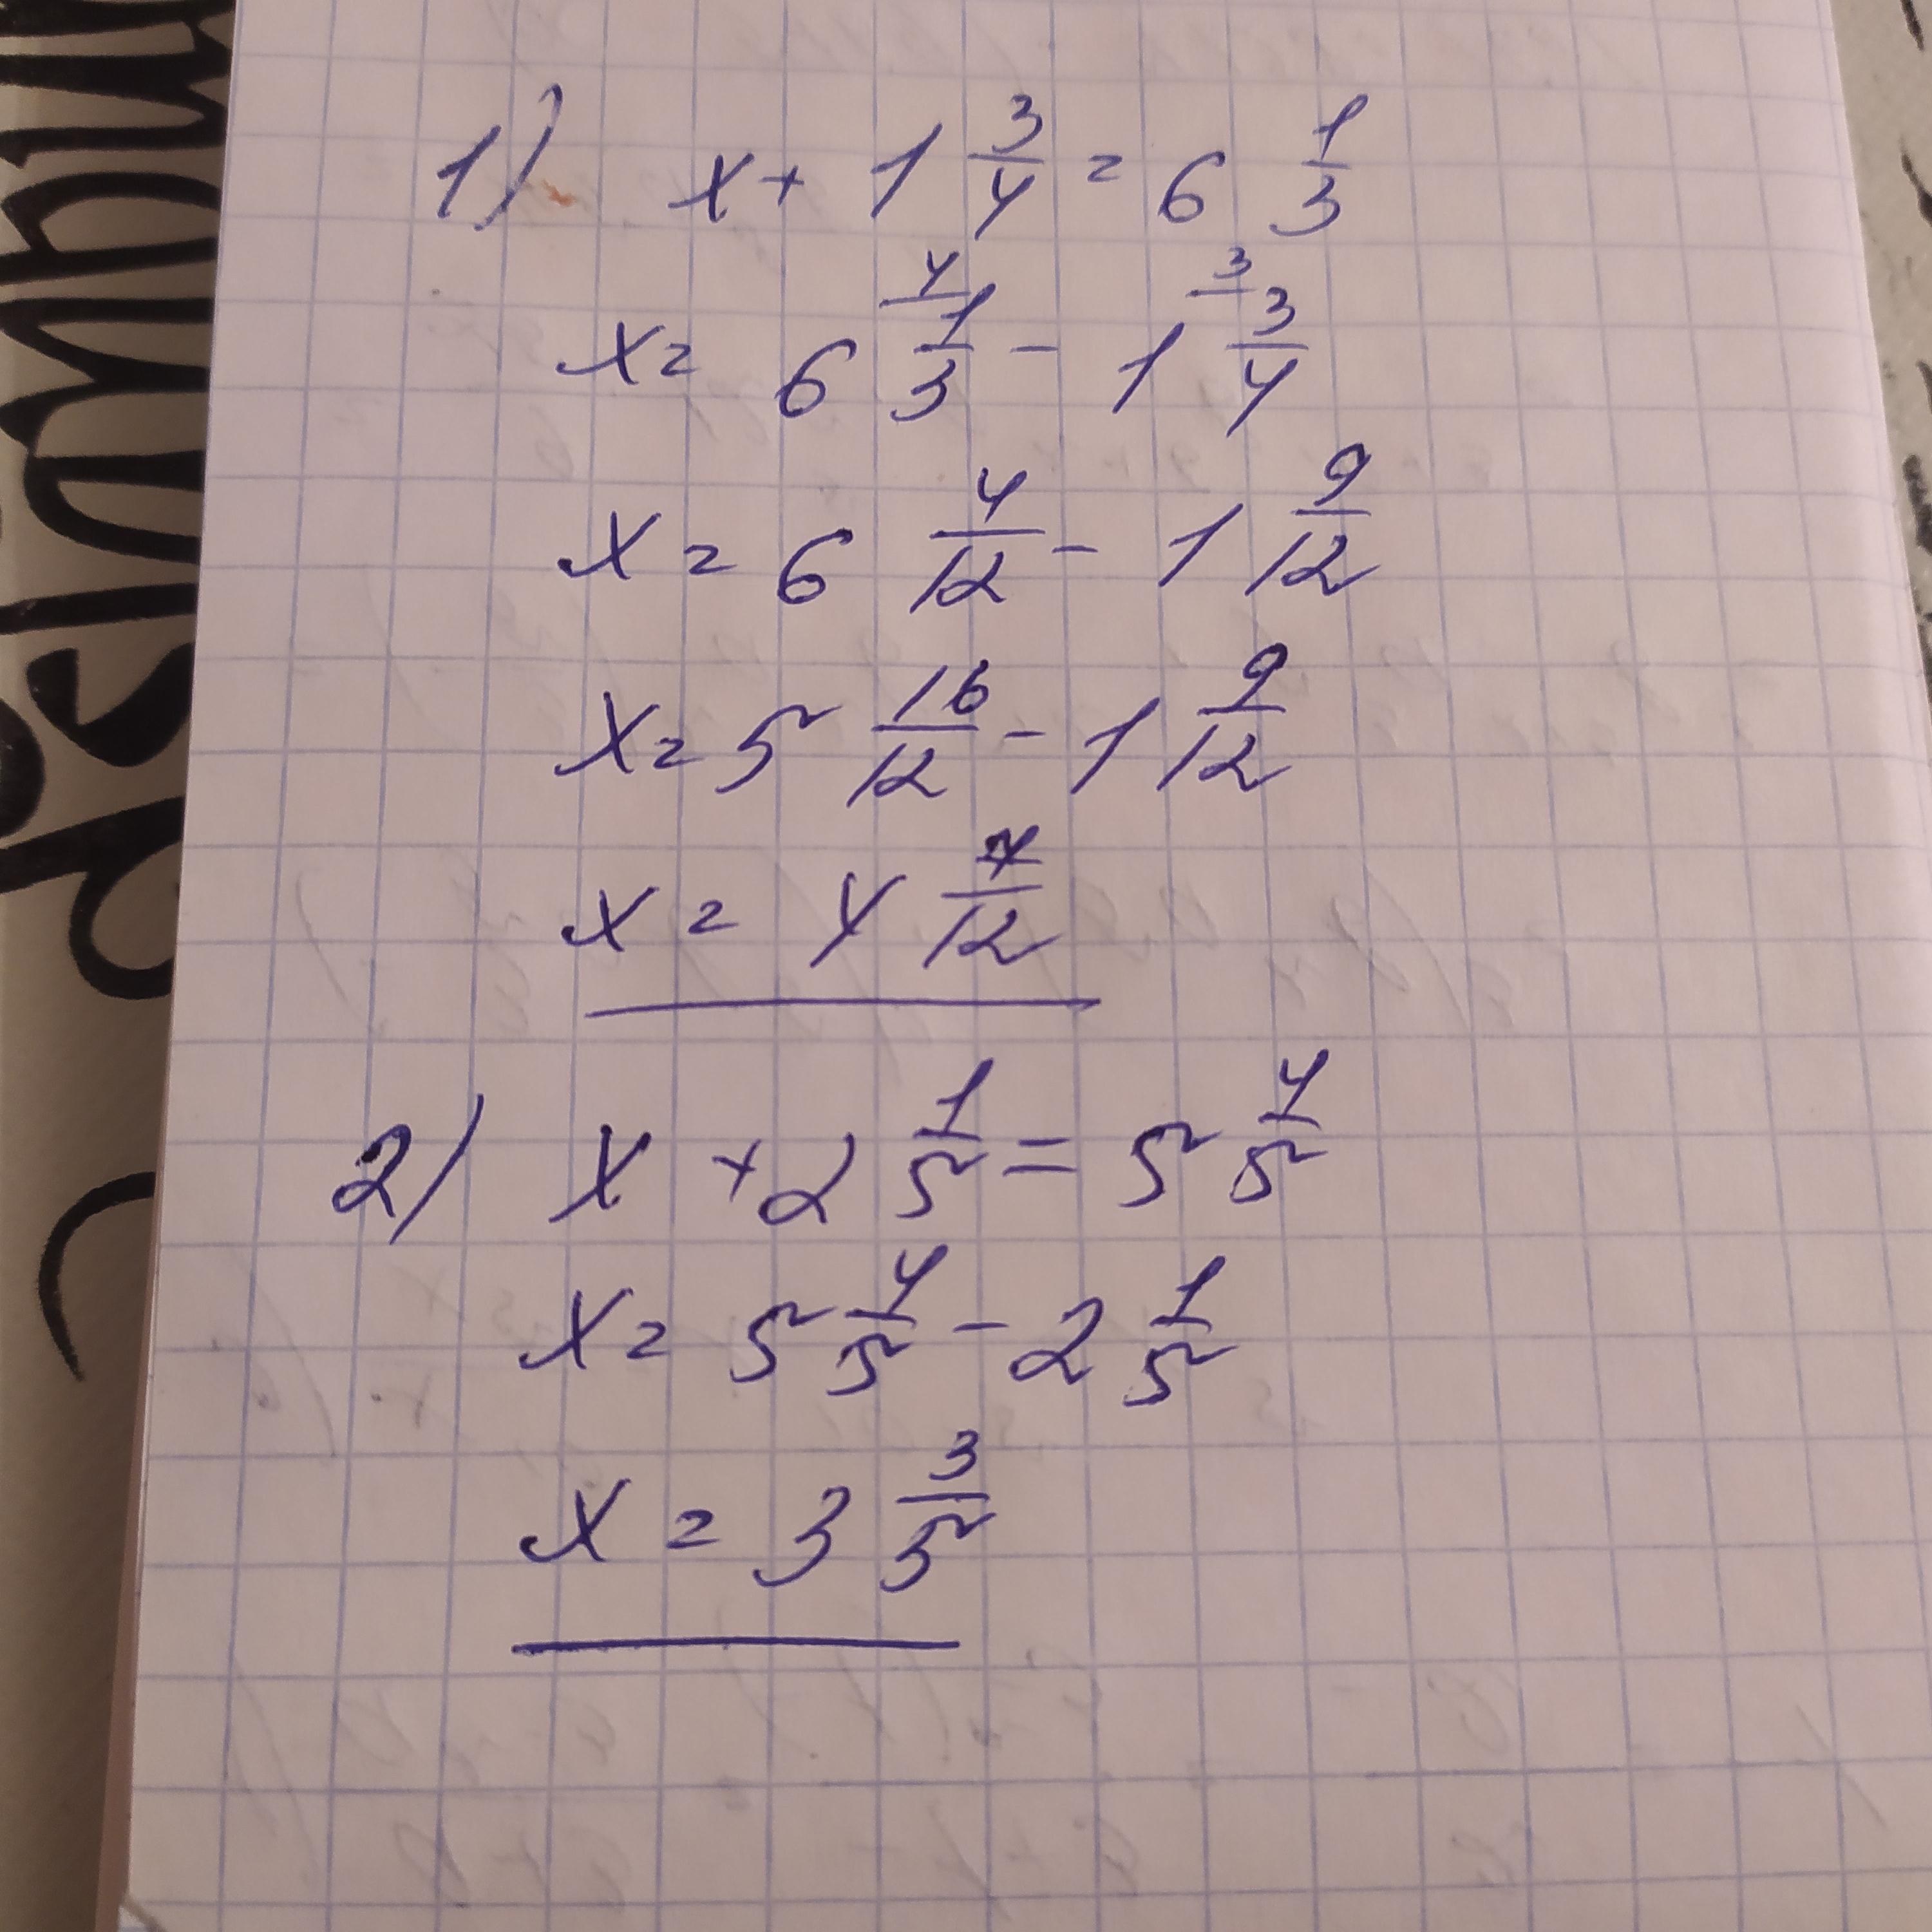 1) x + 1 3/4 = 6 1/3
x = 6 4/ 1/3 - 1 3/ 3/4
x = 6 4/12 - 1 9/12
x = 5 16/12 - 1 9/12
x = 4 7/12
2) x + 2 1/5 = 5 4/5
x = 5 4/5 - 2 1/5
x = 3 3/5